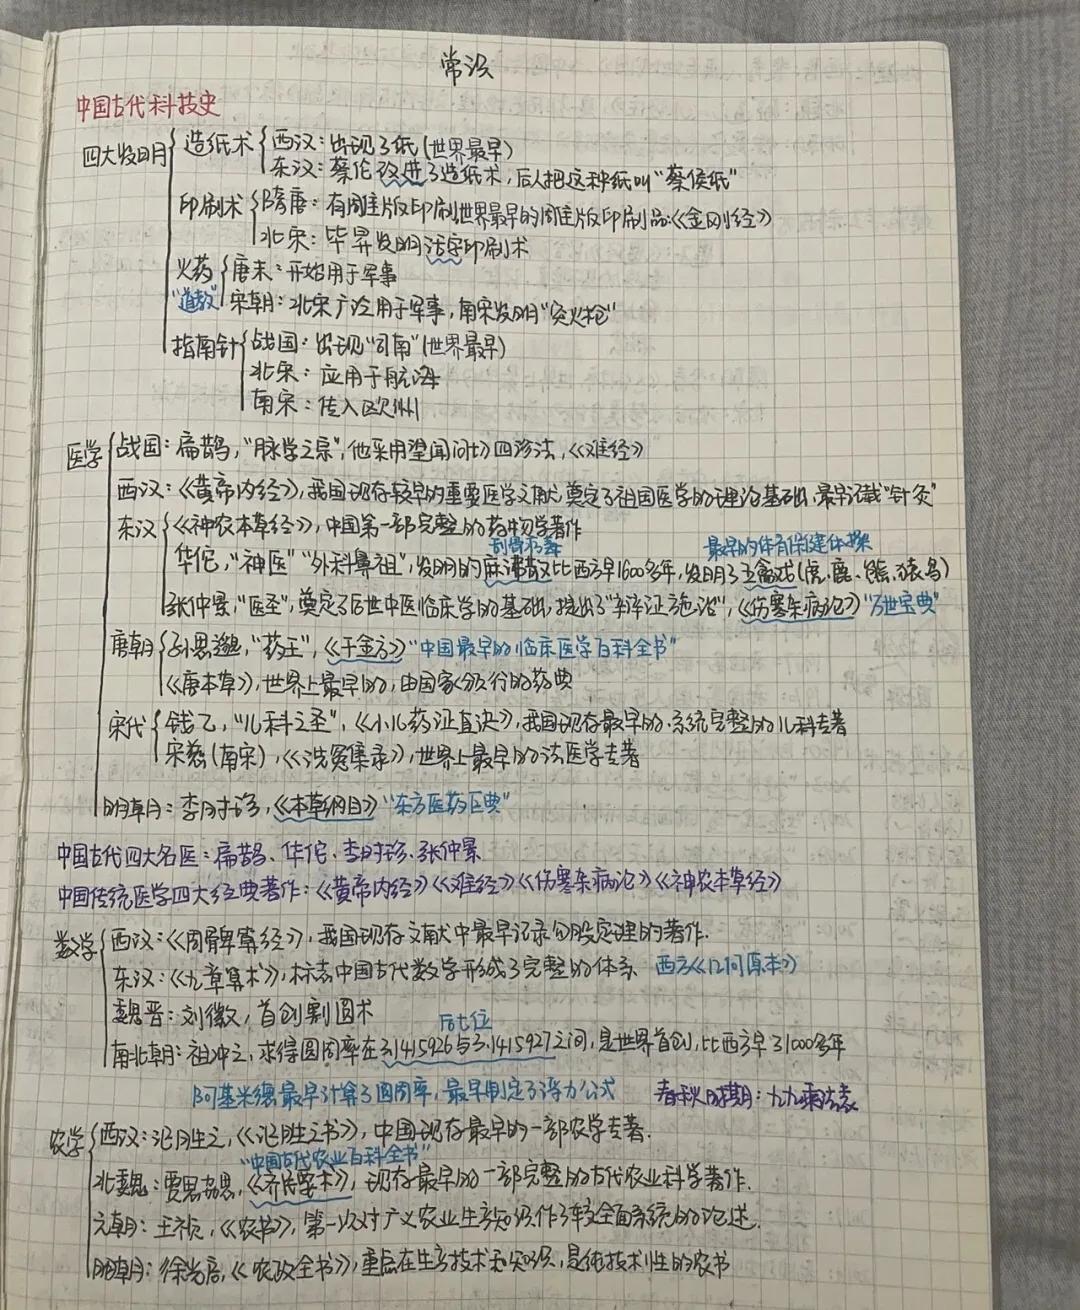 常识
中国古代科技史
四大发明
造纸术
西汉：出现了纸(世界最早)
东汉：蔡伦改进了造纸术，后人把这种纸叫"蔡侯纸"
印刷术
隋唐：有雕版印刷世界最早的雕版印刷品《金刚经》
北宋：毕昇发明活字印刷术
火药
"道教"
唐末：开始用于军事
宋朝：北宋广泛用于军事，南宋发明"突火枪"
指南针
战国：出现"司南"(世界最早)
北宋：应用于航海
南宋：传入欧洲
医学
战国：扁鹊，"脉学之宗"，他采用望闻问切四诊法，《难经》
西汉：《黄帝内经》，我国现存较早的重要医学文献，奠定了祖国医学的理论基础，最早记载"针灸"
东汉
《神农本草经》，中国第一部完整的药物学著作
刮骨疗毒 最早的体育保健体操
华佗，"神医""外科鼻祖"，发明的麻沸散比西方早1600多年，发明了五禽戏(虎、鹿、熊、猿、鸟)
张仲景，"医圣"，奠定了后世中医临床学的基础，提出了"辨证施治"，《伤寒杂病论》"万世宝典"
唐朝
孙思邈，"药王"，《千金方》"中国最早的临床医学百科全书"
《唐本草》，世界上最早的，由国家颁行的药典
宋代
钱乙，"儿科之圣"，《小儿药证直诀》，我国现存最早的、系统完整的儿科专著
宋慈(南宋)，《洗冤集录》，世界上最早的法医学专著
明朝：李时珍，《本草纲目》"东方医药巨典"
中国古代四大名医：扁鹊、华佗、李时珍、张仲景
中国传统医学四大经典著作：《黄帝内经》《难经》《伤寒杂病论》《神农本草经》
数学
西汉：《周髀算经》，我国现存文献中最早记录勾股定理的著作.
东汉：《九章算术》，标志中国古代数学形成了完整的体系 西方《几何原本》
魏晋：刘徽，首创割圆术
后七位
南北朝：祖冲之，求得圆周率在3.1415926与3.1415927之间，是世界首创，比西方早了1000多年
阿基米德最早计算了圆周率，最早制定了浮力公式 春秋时期：九九乘法表
农学
西汉：氾胜之，《氾胜之书》，中国现存最早的一部农学专著.
"中国古代农业百科全书"
北魏：贾思勰，《齐民要术》，现存最早的一部完整的古代农业科学著作.
元朝：王祯，《农书》，第一次对广义农业生产知识作了较全面系统的论述.
明朝：徐光启，《农政全书》，重点在生产技术和知识，是纯技术性的农书